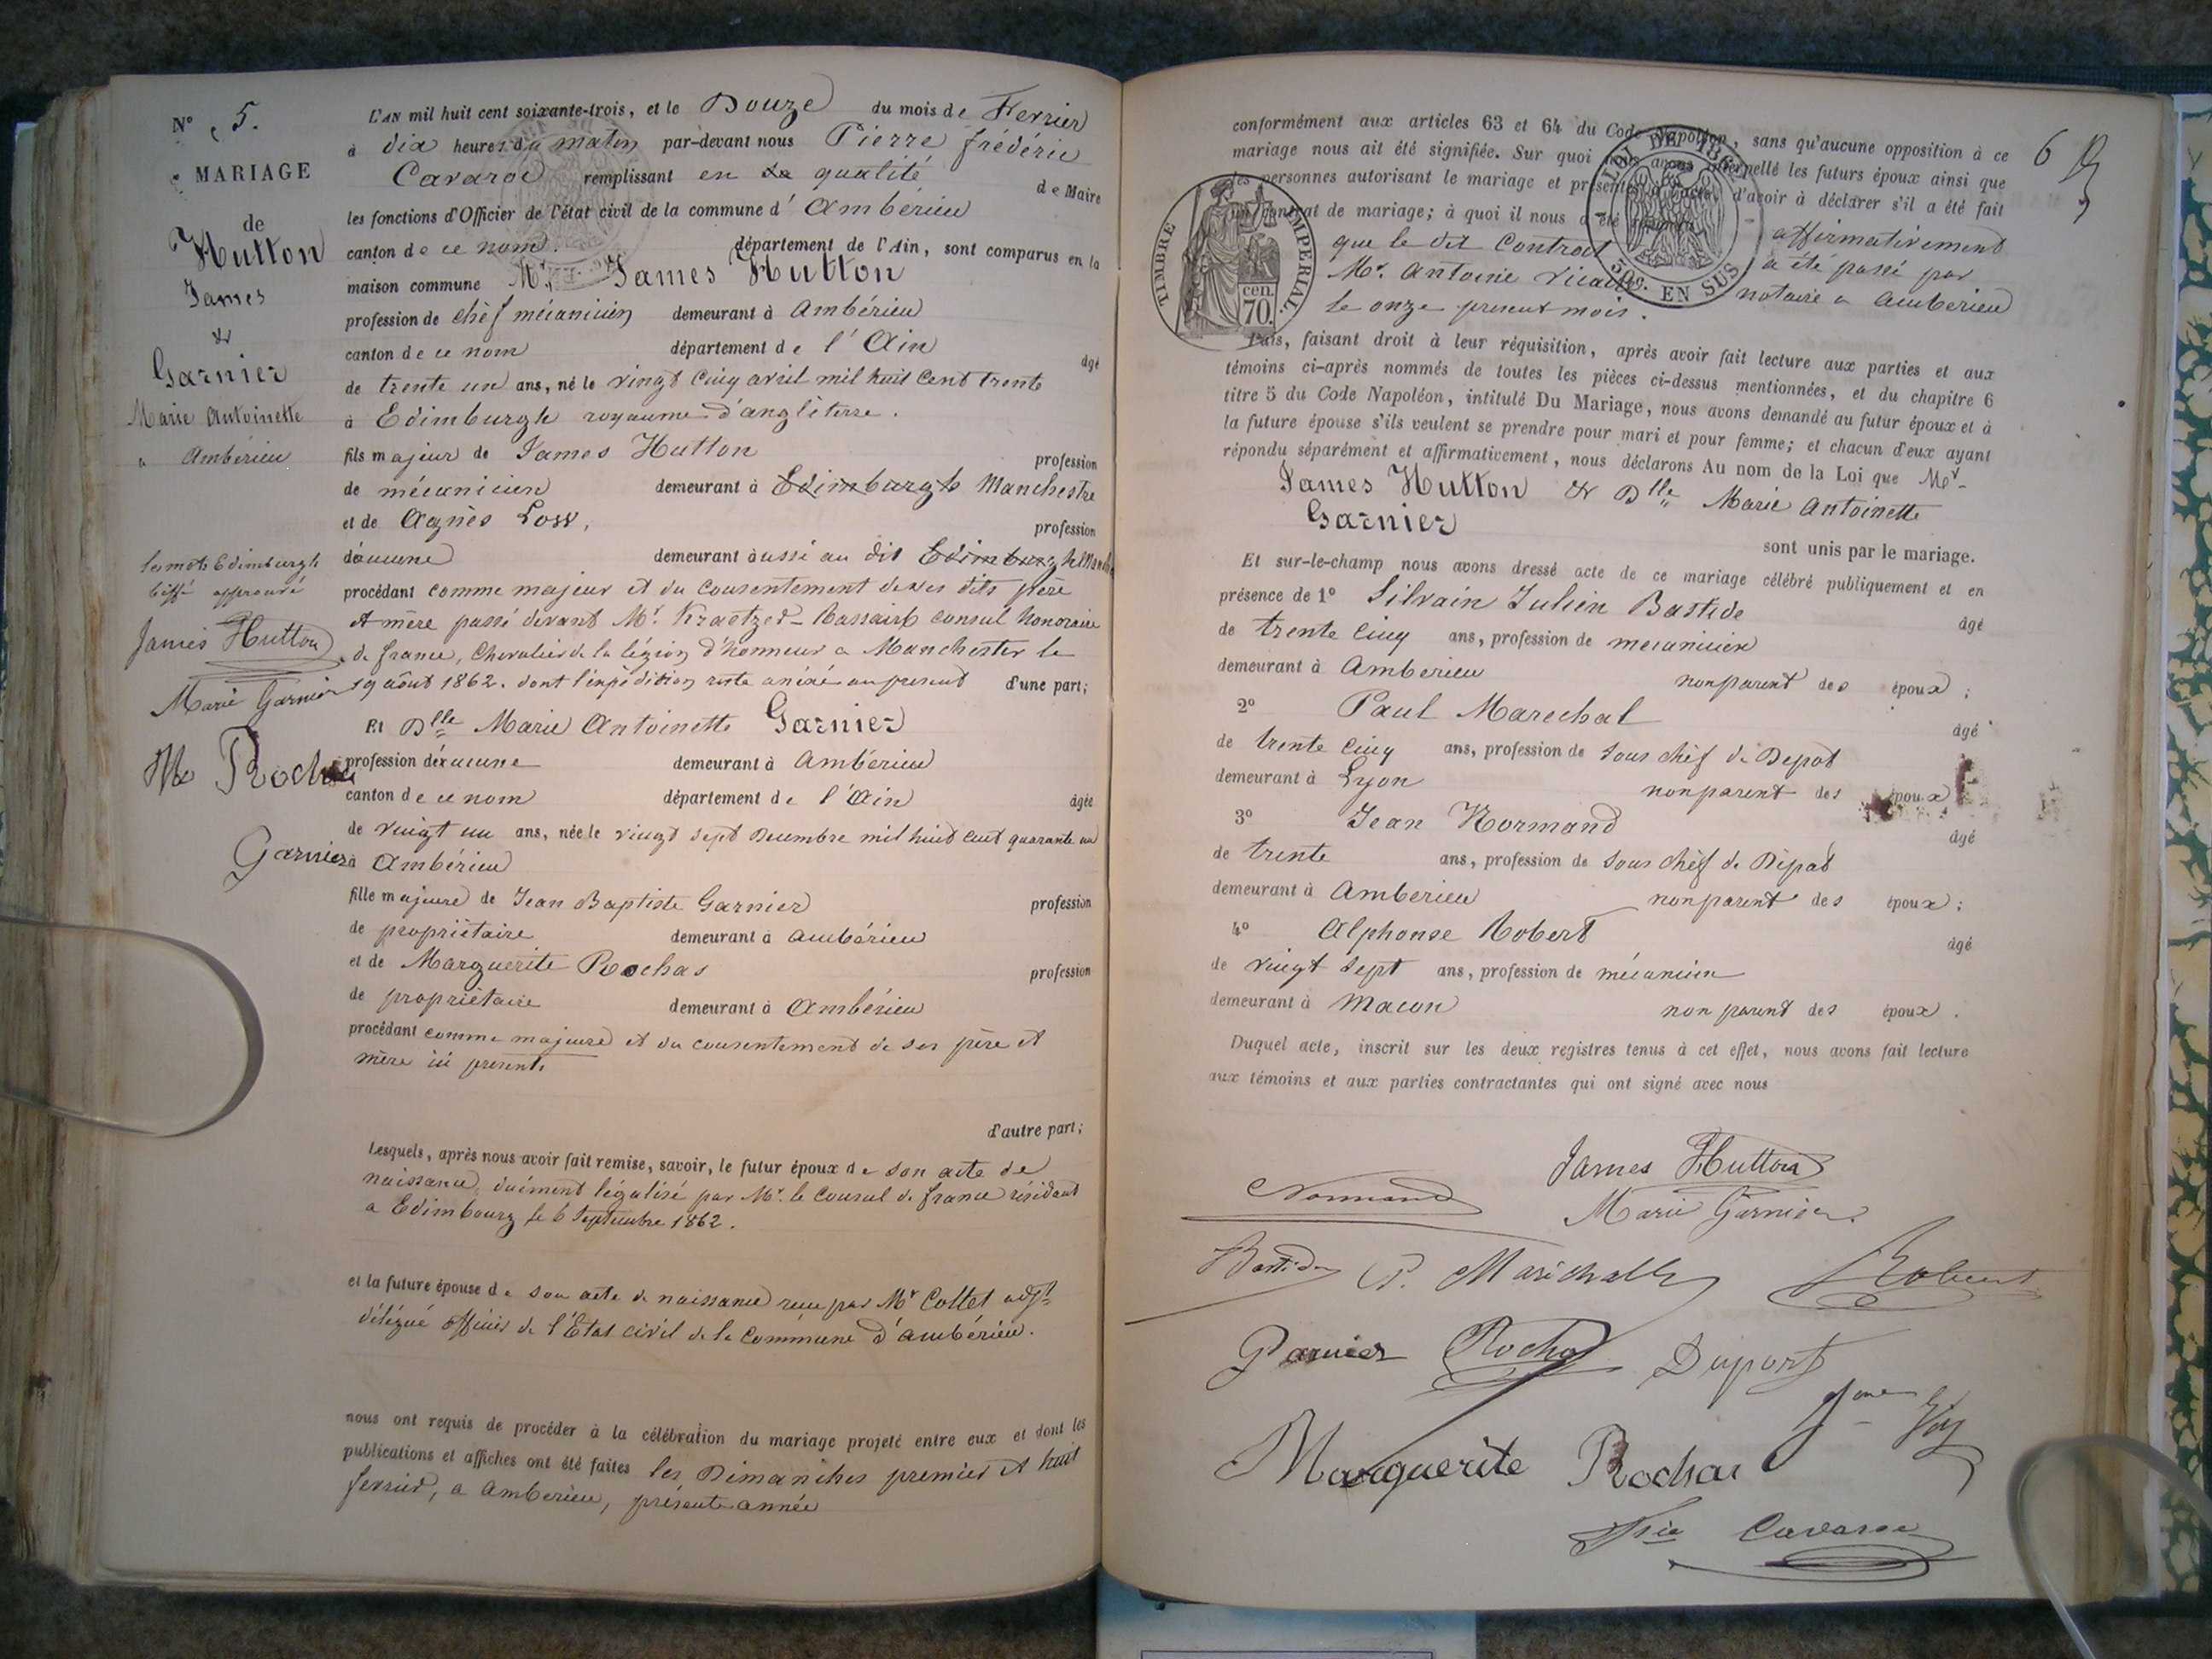 N° 5.
MARIAGE
de
Hutton
James
&
Garnier
Marie Antoinette
a Ambérieu
les mots Edimburgh
biffé approuvé
James Hutton
Marie Garnier
Me Rochas
Garnier
L'AN mil huit cent soixante-trois, et le Douze du mois de Fevrier
à dix heures du matin par-devant nous Pierre frédéric
Cavaroc remplissant en sa qualité de Maire
les fonctions d'Officier de l'état civil de la commune d' Ambérieu
canton de ce nom. département de l'Ain, sont comparus en la
maison commune Mr James Hutton
profession de chef mécanicien demeurant à Ambérieu
canton de ce nom département de l'Ain âgé
de trente un ans, né le vingt cinq avril mil huit cent trente
à Edimburgh royaume d'angleterre.
fils majeur de James Hutton profession
de mécanicien demeurant à Edimburgh Manchestre
et de Agnès Low, profession
d'aucune demeurant à aussi au dit Edimburgh
procédant comme majeur et du consentement de ses dits père
et mère passé devant Mr consul honoraire
de france, Chevalier de la légion d'honneur a Manchester le
19 aôut 1862. dont l'expédition reste anéxé au present d'une part;
Et Dlle Marie Antoinette Garnier
profession d'aucune demeurant à Ambérieu
canton de ce nom département de l'Ain âgée
de vingt un ans, née le vingt sept Decembre mil huit cent quarante un
à Ambérieu
fille majeure de Jean Baptiste Garnier profession
de propriétaire demeurant à Ambérieu
et de Marguerite Rochas profession
de propriétaire demeurant à Ambérieu
procédant comme majeure et du consentement de ses père et
mère ici presents
d'autre part;
Lesquels, après nous avoir fait remise, savoir, le futur époux de son acte de
naissance, duément légalisé par Mr. le Consul de france résidant
a Edimbourg le 6 Septembre 1862.
et la future épouse de son acte de naissance recu par Mr Cottet adjt
délégué officier de l'Etat civil de la Commune d'ambérieu.
nous ont requis de procéder à la célébration du mariage projeté entre eux et dont les
publications et affiches ont été faites les Dimanches premier et huit
fevrier, a Amberieu, présente année
6
conformément aux articles 63 et 64 du Code Napoléon, sans qu'aucune opposition à ce
mariage nous ait été signifiée. Sur quoi nous avons interpellé les futurs époux ainsi que
les personnes autorisant le mariage et présentes à l'acte, d'avoir à déclarer s'il a été fait
un contrat de mariage; à quoi il nous a été répondu affirmativement
que le dit Contract a été passé par
Mr. Antoine notaire a Amberieu
le onze present mois.
TIMBRE IMPERIAL
70 cen.
LOI DE 1862
50c. EN SUS
Puis, faisant droit à leur réquisition, après avoir fait lecture aux parties et aux
témoins ci-après nommés de toutes les pièces ci-dessus mentionnées, et du chapitre 6
titre 5 du Code Napoléon, intitulé Du Mariage, nous avons demandé au futur époux et à
la future épouse s'ils veulent se prendre pour mari et pour femme; et chacun d'eux ayant
répondu séparément et affirmativement, nous déclarons Au nom de la Loi que Mr
James Hutton & Dlle Marie Antoinette
Garnier
sont unis par le mariage.
Et sur-le-champ nous avons dressé acte de ce mariage célébré publiquement et en
présence de 1° Silvain Julien Bastide âgé
de trente cinq ans, profession de mecanicien
demeurant à Amberieu non parent des époux;
2° Paul Marechal âgé
de trente cinq ans, profession de sous chef de Depot
demeurant à Lyon non parent des époux
3° Jean Normand âgé
de trente ans, profession de sous chef de Dépot
demeurant à Amberieu non parent des époux;
4° Alphonse Robert âgé
de vingt sept ans, profession de mécanicien
demeurant à Macon non parent des époux.
Duquel acte, inscrit sur les deux registres tenus à cet effet, nous avons fait lecture
aux témoins et aux parties contractantes qui ont signé avec nous
James Hutton
Normand Marie Garnier
Bastide P. Maréchall Robert
Garnier Rochas Duport
Marguerite Rochas
Fric Cavaroc